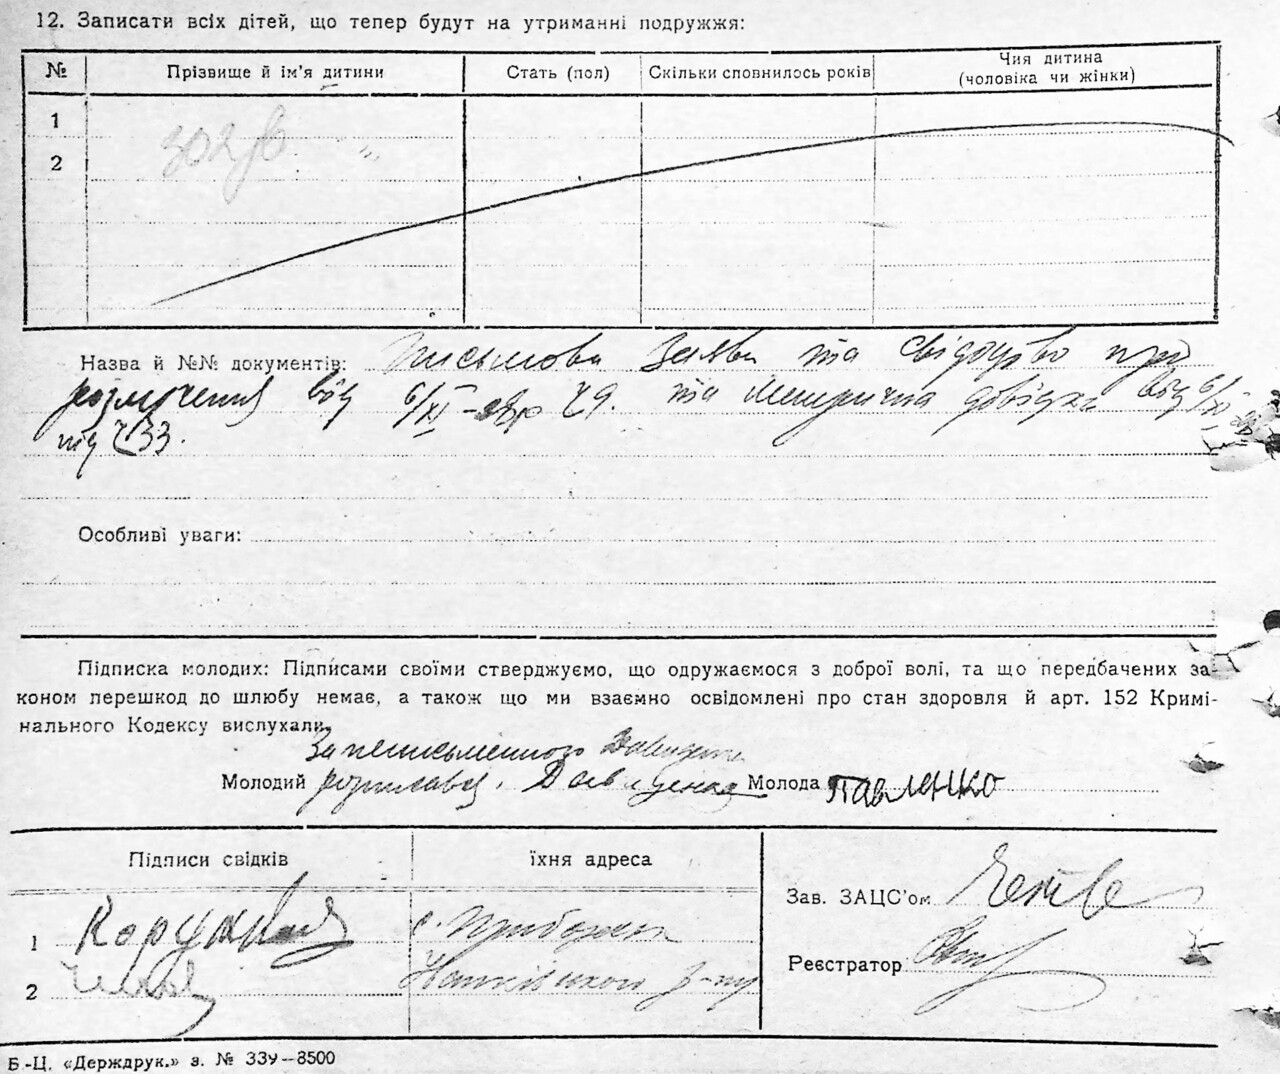 12. Записати всіх дітей, що тепер будут на утриманні подружжя:
№ Прізвище й ім'я дитини Стать (пол) Скільки сповнилось років Чия дитина (чоловіка чи жінки)
1
2
Назва й №№ документів: письмова заява та свідоцтво про
розлучення від 6/XI- 29. та метрична довідка від 6/XI
під ч 33.
Особливі уваги:
Підписка молодих: Підписами своїми стверджуємо, що одружаємося з доброї волі, та що передбачених за-
коном перешкод до шлюбу немає, а також що ми взаємно освідомлені про стан здоровля й арт. 152 Кримі-
нального Кодексу вислухали.
За неписьменного
Молодий розписався. Молода Павленко
Підписи свідків їхня адреса
Зав. ЗАЦС'ом
1 с.
Реєстратор
2 р-ну
Б.-Ц. «Держдрук.» з. № 339—8500